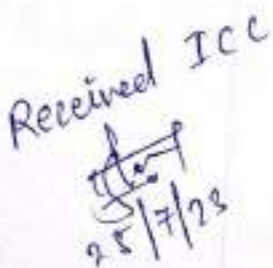 Received ICC
25/7/23